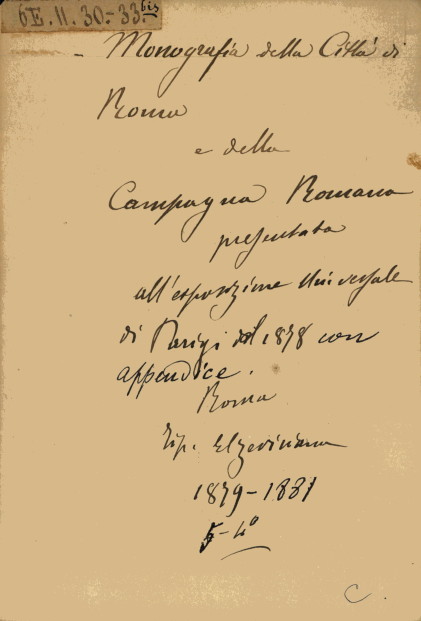 6E.11.30.-33.bis
- Monografia della Città di
Roma
e della
Campagna Romana
presentata
all'esposizione Universale
di Parigi del 1878 con
appendice.
Roma
Tip. Elzeviriana
1879-1881
5-4°
C.